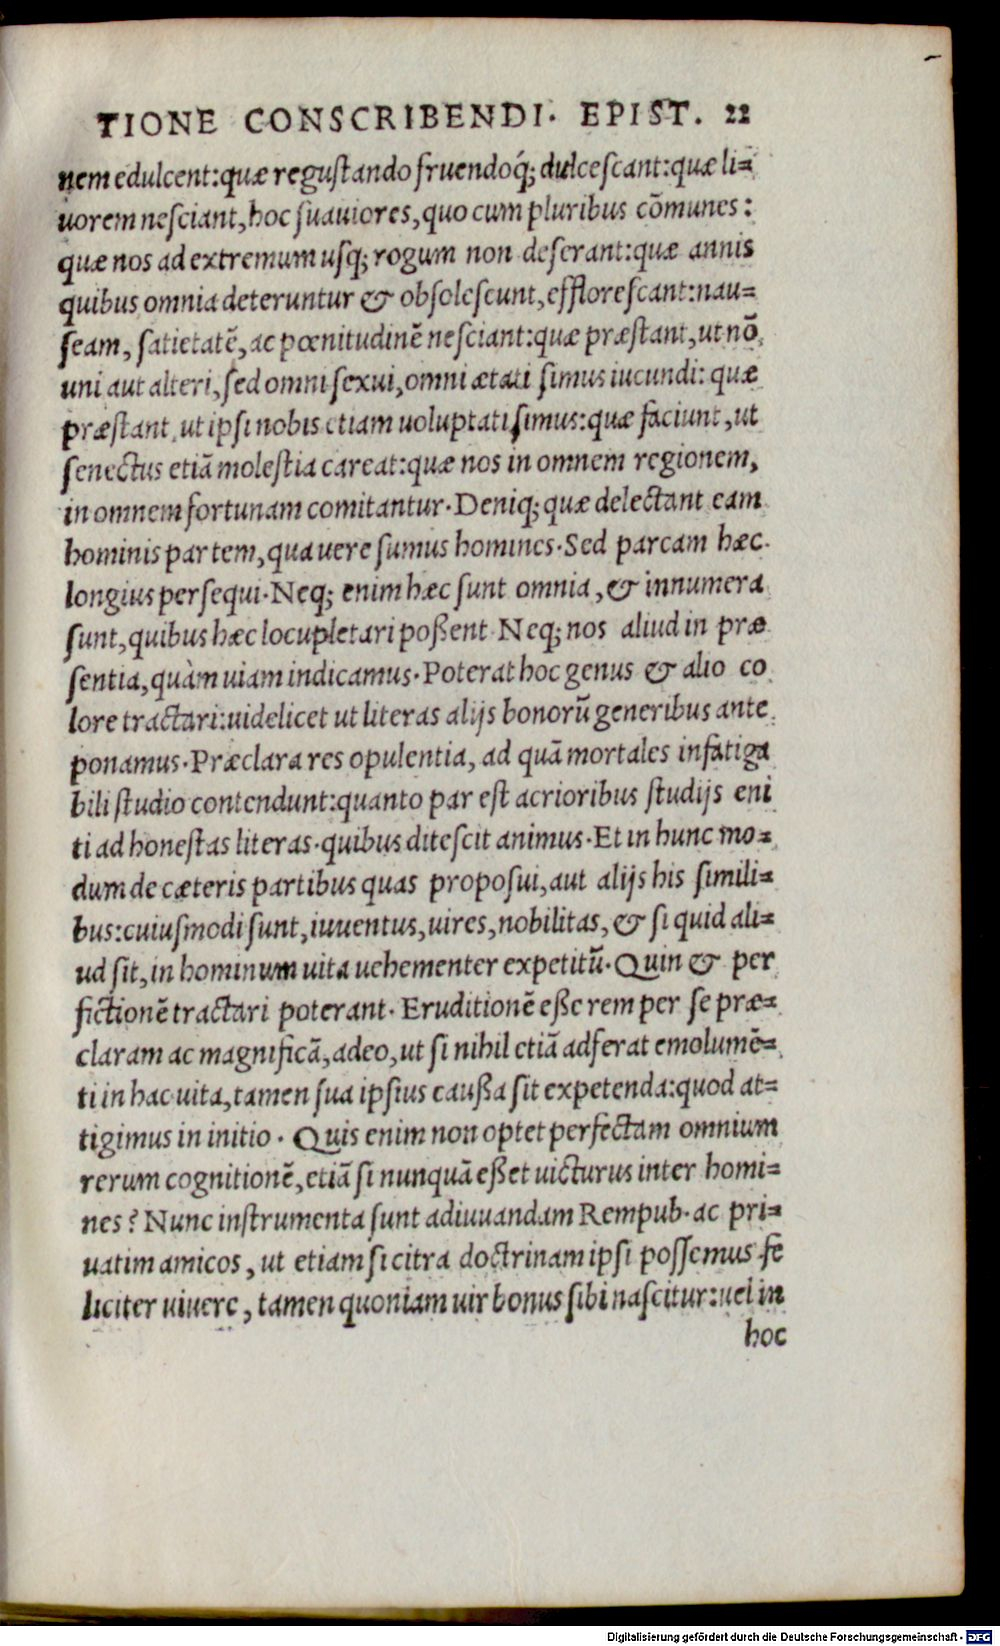 TIONE CONSCRIBENDI. EPIST. 22
nem edulcent: quæ regustando fruendoq́; dulcescant: quæ li=
uorem nesciant, hoc suauiores, quo cum pluribus cōmunes:
quæ nos ad extremum usq; rogum non deserant: quæ annis
quibus omnia deteruntur & obsolescunt, efflorescant: nau=
seam, satietatē, ac pœnitudinē nesciant: quæ præstant, ut nō
uni aut alteri, sed omni sexui, omni ætati simus iucundi: quæ
præstant, ut ipsi nobis etiam uoluptati simus: quæ faciunt, ut
senectus etiā molestia careat: quæ nos in omnem regionem,
in omnem fortunam comitantur. Deniq; quæ delectant eam
hominis partem, qua uere sumus homines. Sed parcam hæc
longius persequi. Neq; enim hæc sunt omnia, & innumera
sunt, quibus hæc locupletari poßent. Neq; nos aliud in præ
sentia, quàm uiam indicamus. Poterat hoc genus & alio co
lore tractari: uidelicet ut literas alijs bonorū generibus ante
ponamus. Præclara res opulentia, ad quā mortales infatiga
bili studio contendunt: quanto par est acrioribus studijs eni
ti ad honestas literas. quibus ditescit animus. Et in hunc mo=
dum de cæteris partibus quas proposui, aut alijs his simili=
bus: cuiusmodi sunt, iuuentus, uires, nobilitas, & si quid ali=
ud sit, in hominum uita uehementer expetitū. Quin & per
fictionē tractari poterant. Eruditionē eße rem per se præ=
claram ac magnificā, adeo, ut si nihil etiā adferat emolumē=
ti in hac uita, tamen sua ipsius caußa sit expetenda: quod at=
tigimus in initio. Quis enim non optet perfectam omnium
rerum cognitionē, etiā si nunquā eßet uicturus inter homi=
nes? Nunc instrumenta sunt adiuuandam Rempub. ac pri=
uatim amicos, ut etiam si citra doctrinam ipsi possemus fe
liciter uiuere, tamen quoniam uir bonus sibi nascitur: uel in
hoc
Digitalisierung gefördert durch die Deutsche Forschungsgemeinschaft - DFG